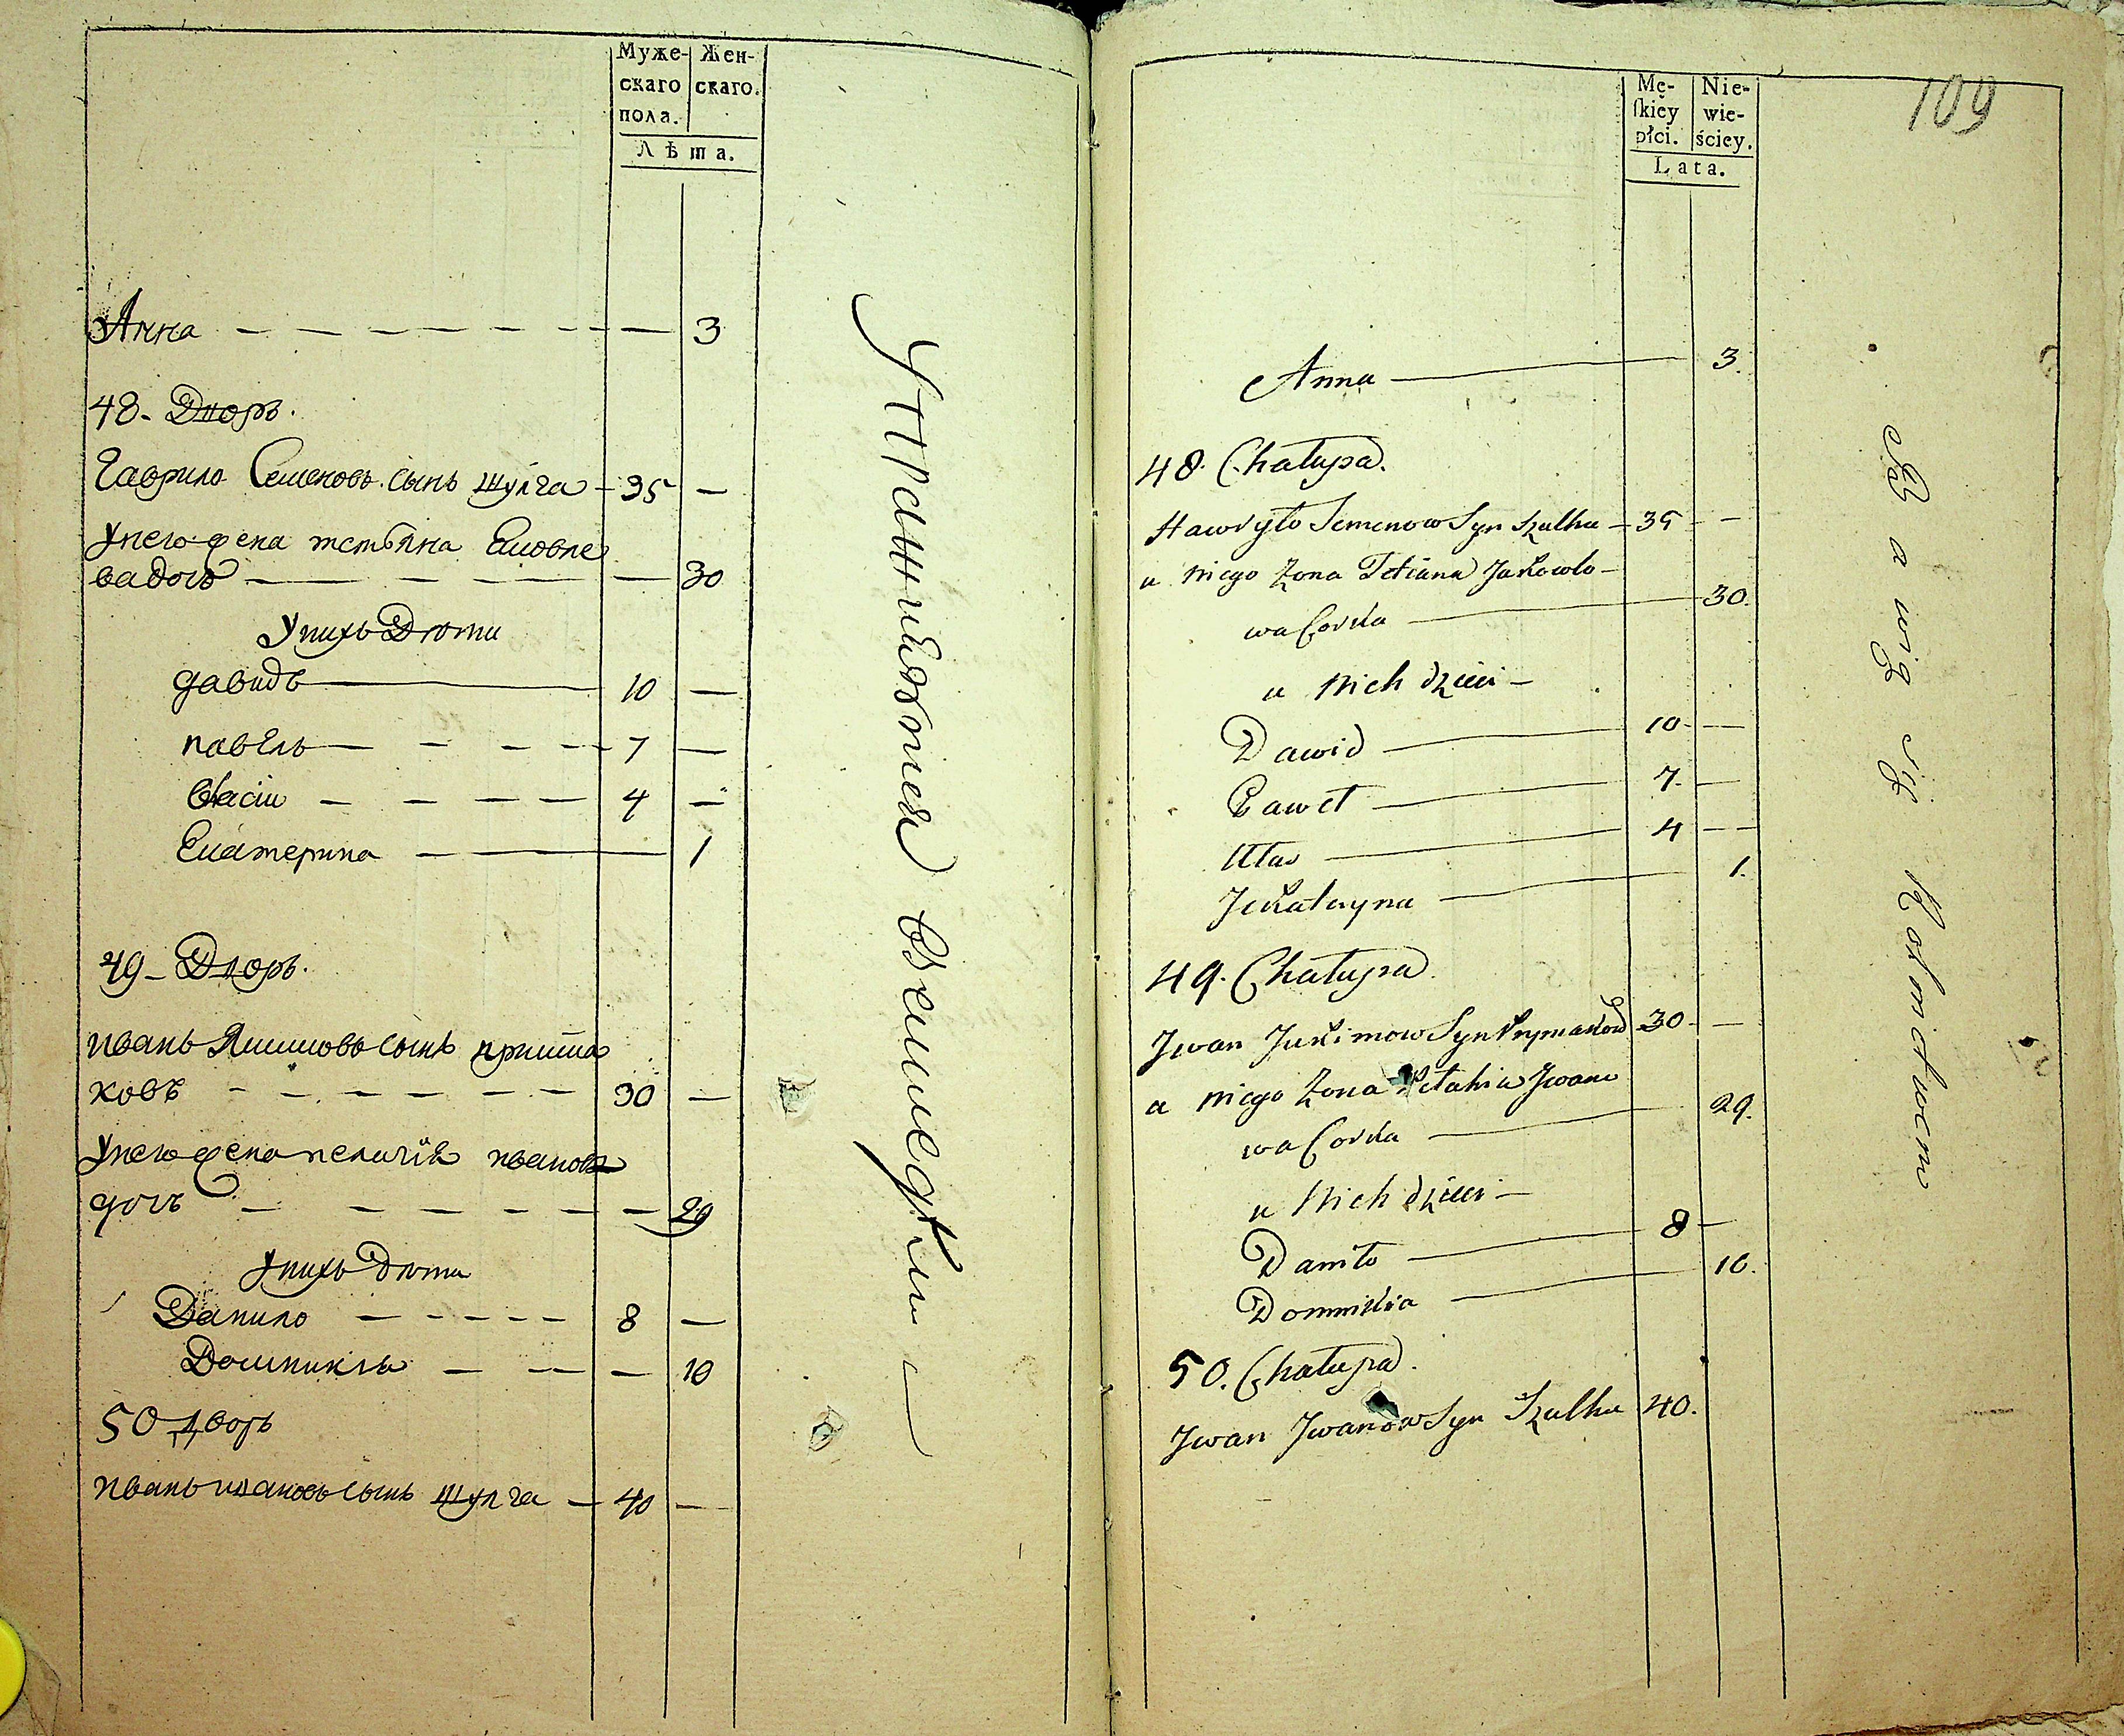 Муже-
скаго
пола.
Жен-
скаго.
Лѣта.
Анна 3
48 - Дворъ.
Гаврило Семеновъ сынъ шулга 35
Унего жена тетьяна Ековле
ва дочь 30
Унихъ Дѣти
давидъ 10
павелъ 7
власіи 4
Екатерина 1
49 - Дворъ.
иванъ Якимовъ сынъ прийма
ковъ 30
Унего жена пелагія иванова
дочъ 29
унихъ дѣти
Данило 8
Домникія 10
50 дворъ
иванъ ивановъ сынъ шулга 40
Упражняются въ земледѣліи
109
Mę-
skiéy
płci.
Nie-
wie-
ściey.
Lata.
Anna 3.
48. Chałupa.
Hawryło Semenow Syn Szulha 35
u niego Żona Tetiana Jakowlo-
wa Corka 30.
u Nich dzieci
Dawid 10
Paweł 7.
Ułas 4
Jekateryna 1.
49. Chałupa.
Jwan Jukimow Syn Prymakow 30
u niego Żona Pełahia Jwano
wa Corka 29.
u Nich dzieci
Daniło 8
Domnikia 10.
50. Chałupa.
Jwan Jwanow Syn Szulha 40.
Bawią się Rolnictwem